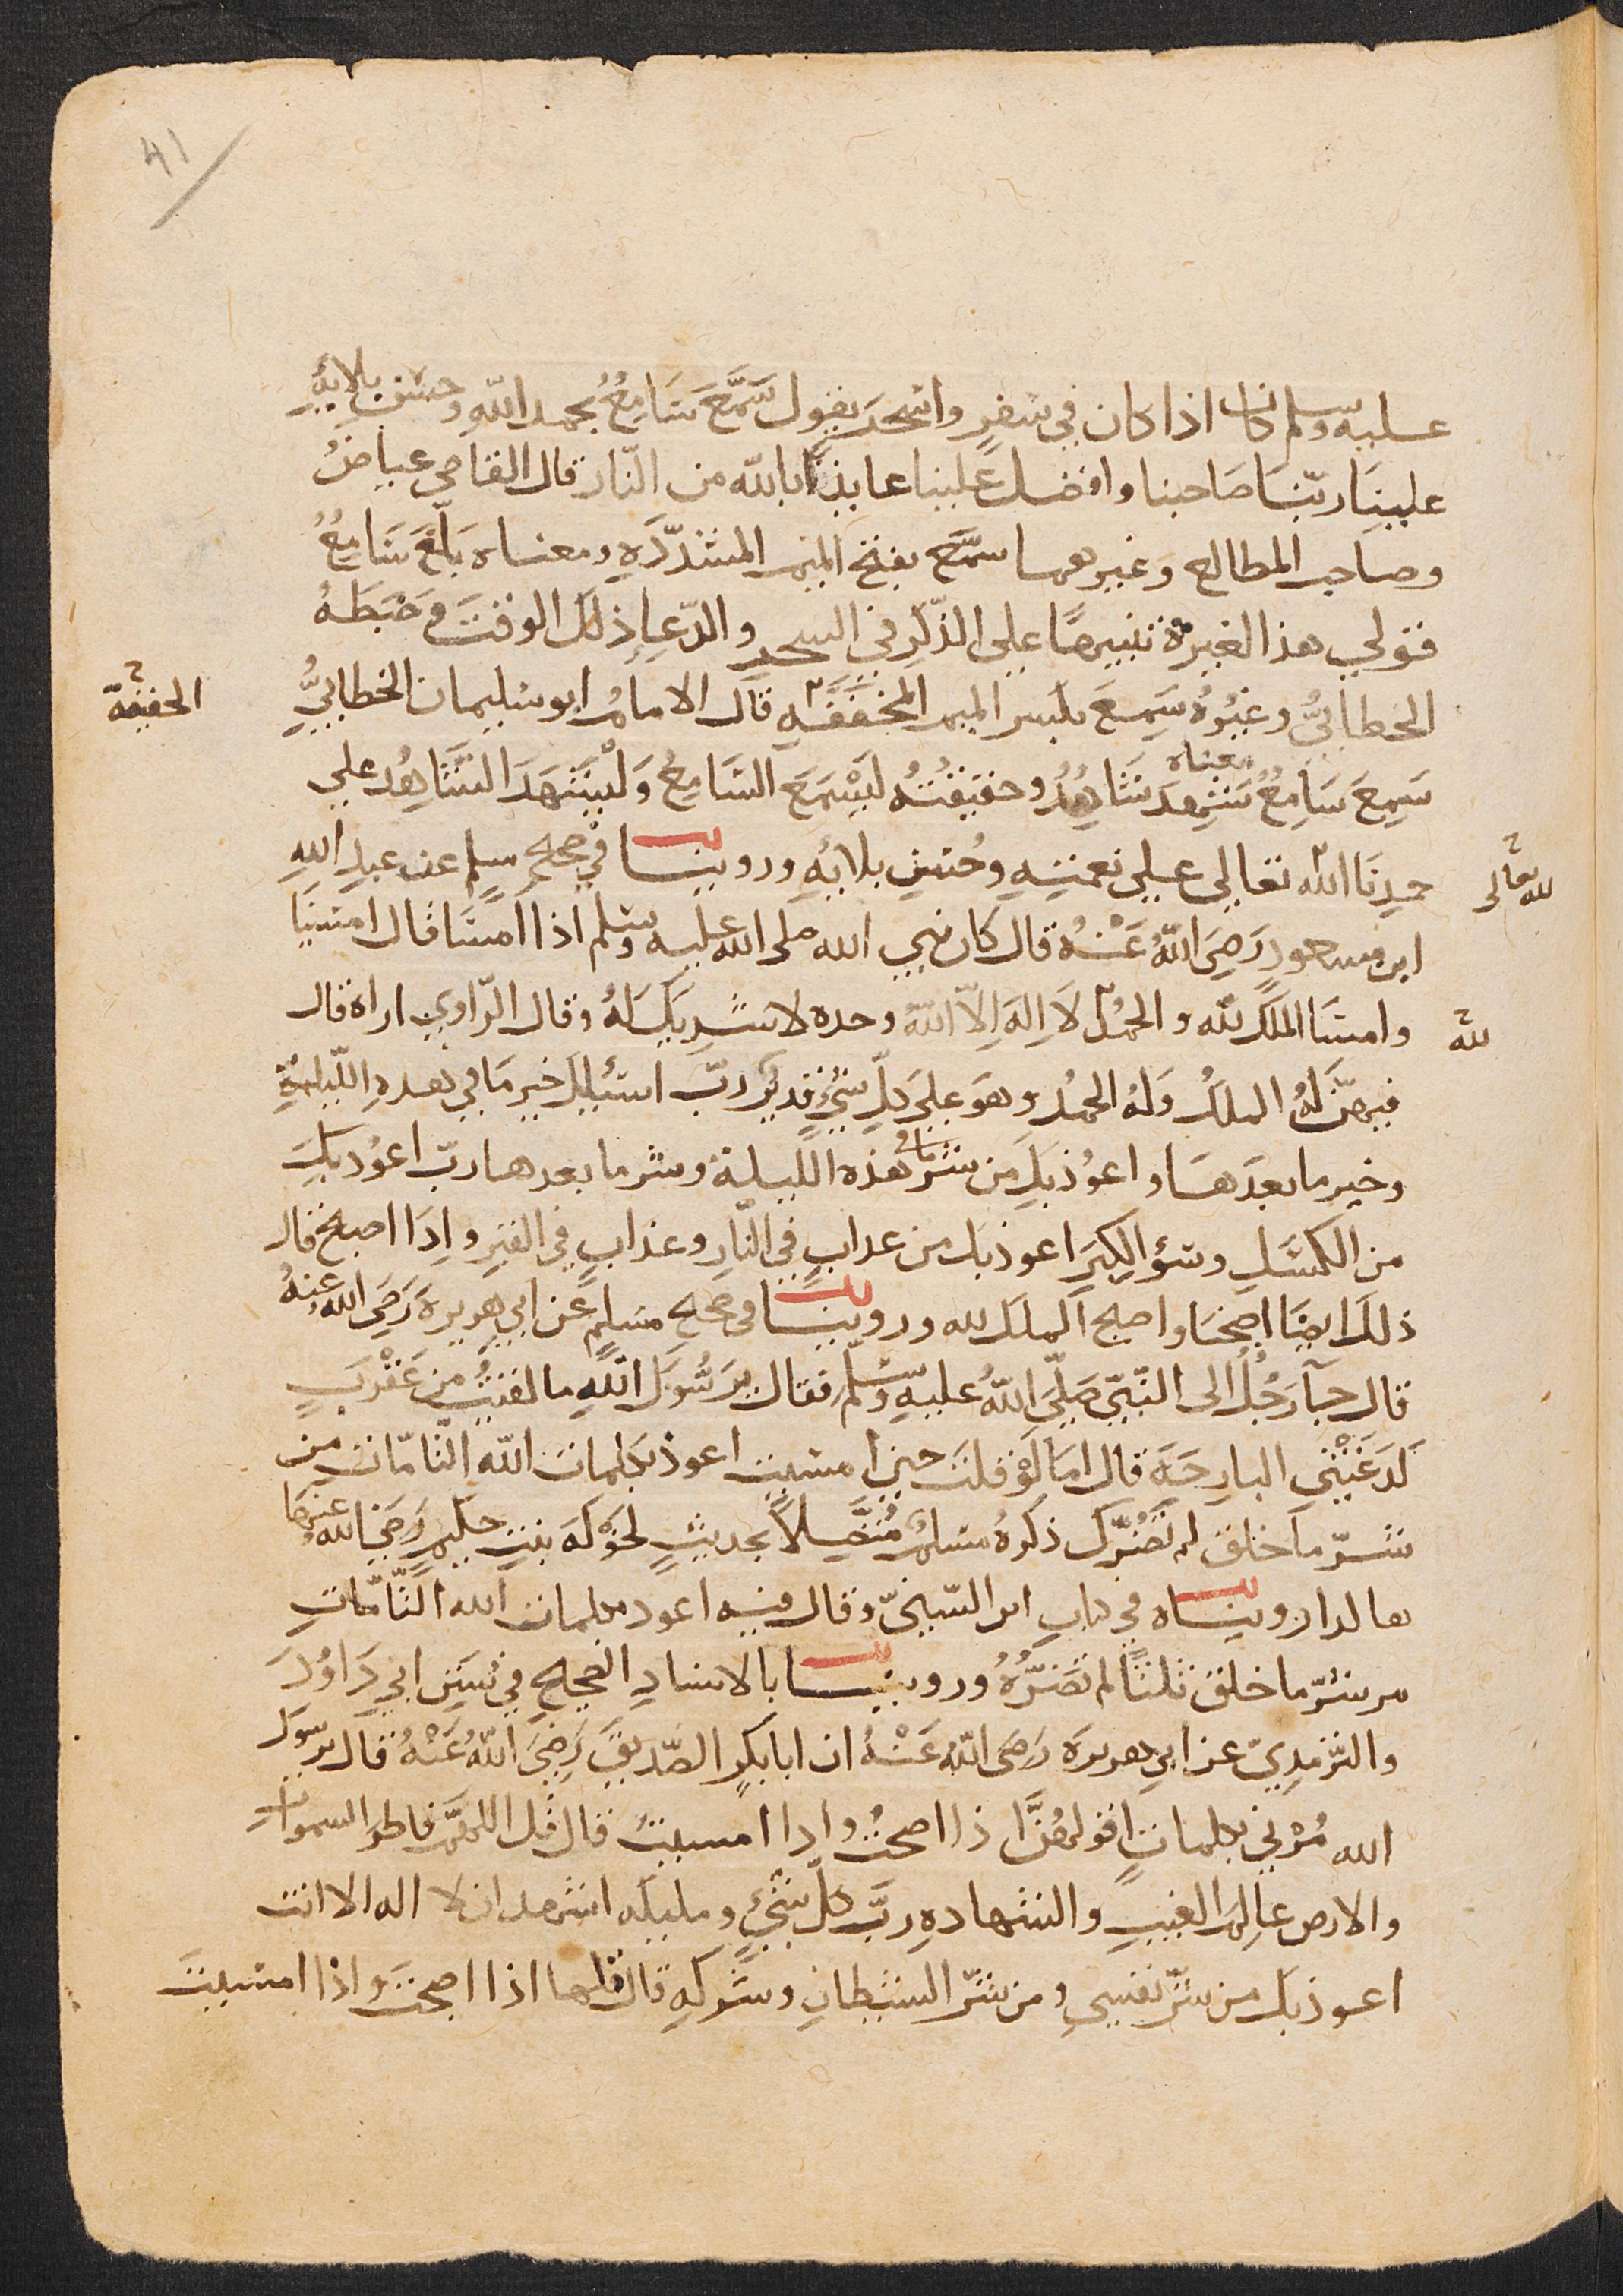 41
عليه وسلم كان اذا كان في سفرٍ واسحر يقول سَمَّعَ سَامِعٌ بحمد اللّهِ وحسن بلائِهِ
علينَا ربّنَا صَاحبنا وافضل علينا عايذًا بالله من النّار قال القاضي عياضٌ
وصاحب المطالع وَغيرهما سمَّع بفتح الميم المشدّدَهِ ومعناه بَلّغَ سَامِعٌ
قولي هذا لغيره تنبيهًا على الذّكرِ في السحر والدّعاءِ ذلك الوقتَ وَضبَطَهُ
الخطابيُّ وغيْرُهُ سَمِعَ بكسر الميم المخفّفَهِ قال الامامُ ابو سليمان الخطابيُّ
الخفيفة
سَمِعَ سَامِعٌ معناه شهدَ شَاهدٌ وحقيقتُهُ ليَسْمَعَ السَّامِعُ وَليَشهَدَ الشَّاهِدُ علي
حمدِنَا اللّه تعالي علي نعمتِهِ وحُسنِ بلائِهِ وروينا في صحيح مسلمٍ عن عبدِ اللهِ
لله تعالى
ابن مسعودٍ رَضِيَ اللّهُ عَنْهُ قال كان نبي الله صلى الله عليه وسلم اذا امسَا قال امسَيْنَا
وامسَا الملك للّه والحمدُ لَا اِلهَ اِلّا اللّهُ وحده لا شَرِيكَ لَهُ وقال الرّاوي اراه قال
لله
فيهنّ لَهُ الملكُ وَلهُ الحمدُ وهوَ علي كلّ شيءٍ قديرٌ ربِّ اسئلك خير مَا في هذهِ اللّيلَةِ
وخير ما بعدَهَا واعوُذ بكَ من شرّ ما في هذه الليلة وشر ما بعدها ربّ اعوُذ بكَ
من الكسَلِ وسُوءِ الكِبَرِ اعوذ بك من عذابٍ في النّارِ وعذابٍ في القبرِ واِذَا اصبح قال
ذلك ايضًا اصبحنا واصبح الملك لله وروينا في صحيح مسلمٍ عن ابي هريرة رَضِيَ الله عنهُ
قال جآء رَجُلٌ الى النّبيّ صَلّي اللّهُ عليهِ وسلّم فقال يرسُولَ اللهِ ما لقيتُ من عَقْربٍ
لَدغَتْني البارحَةَ قال امَا لَوْ قلتَ حين امسيت اعوذ بكلمات اللهِ التّامّات من
شرّ ما خلق لم تضُرّك ذكرهُ مسلمٌ مُتّصلاً بحديثٍ لخَوْلَه بنتِ حكيمٍ رَضي الله عنهما
هالدا روينَاه في كتابِ ابن السّنيّ وقال فيه اعوذ بكلمات الله التّامّاتِ
من شرّ ما خلق ثلثًا لم تَضرَّهُ وروينا بالاسنادِ الصحيحِ في سُننِ ابي دَاوُدَ
والتّرمذيّ عن ابي هريرة رَضيَ اللّه عَنْهُ ان ابا بكرٍ الصّديق رَضِيَ اللهُ عَنْهُ قال يرسول
الله مُرْني بكلماتٍ اقولهُنَّ اذا اصبحتُ واذا امسيتُ قال قُل اللهمّ فاطر السموات
والارض عالِمَ الغيبِ والشهادهِ ربّ كلّ شيءٍ ومليكه اشهد ان لا اله الا انت
اعوذ بك من شرّ نفسي ومن شرّ الشيطانِ وشركهِ قال قلها اذا اصبحتَ واذا امسيتَ